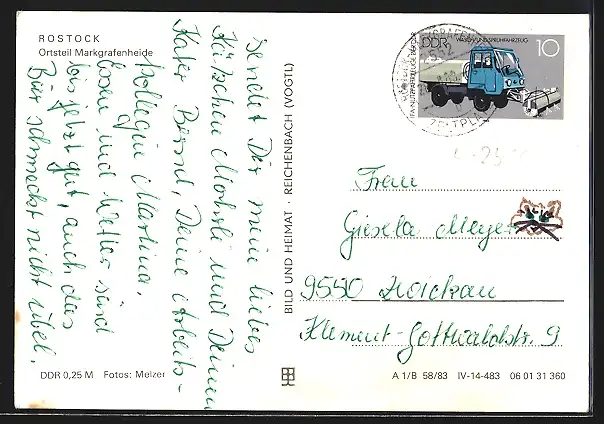 ROSTOCK
Ortsteil Markgrafenheide
sendet Dir mein liebes
Kätzchen und Deinem
Kater Bernd, Deine Arbeits-
kollegin Martina.
Essen und Wetter sind
bis jetzt gut, auch das
Bier schmeckt nicht übel.
BILD UND HEIMAT · REICHENBACH (VOGTL)
DDR
WASCH- UND SPRÜHFAHRZEUG
10
IFA-NUTZFAHRZEUGE DER DDR
Frau
Gisela Meyer
9550 Zwickau
Klement-Gottwaldstr. 9
DDR 0,25 M Fotos: Melzer
A 1/B 58/83 IV-14-483 06 01 31 360